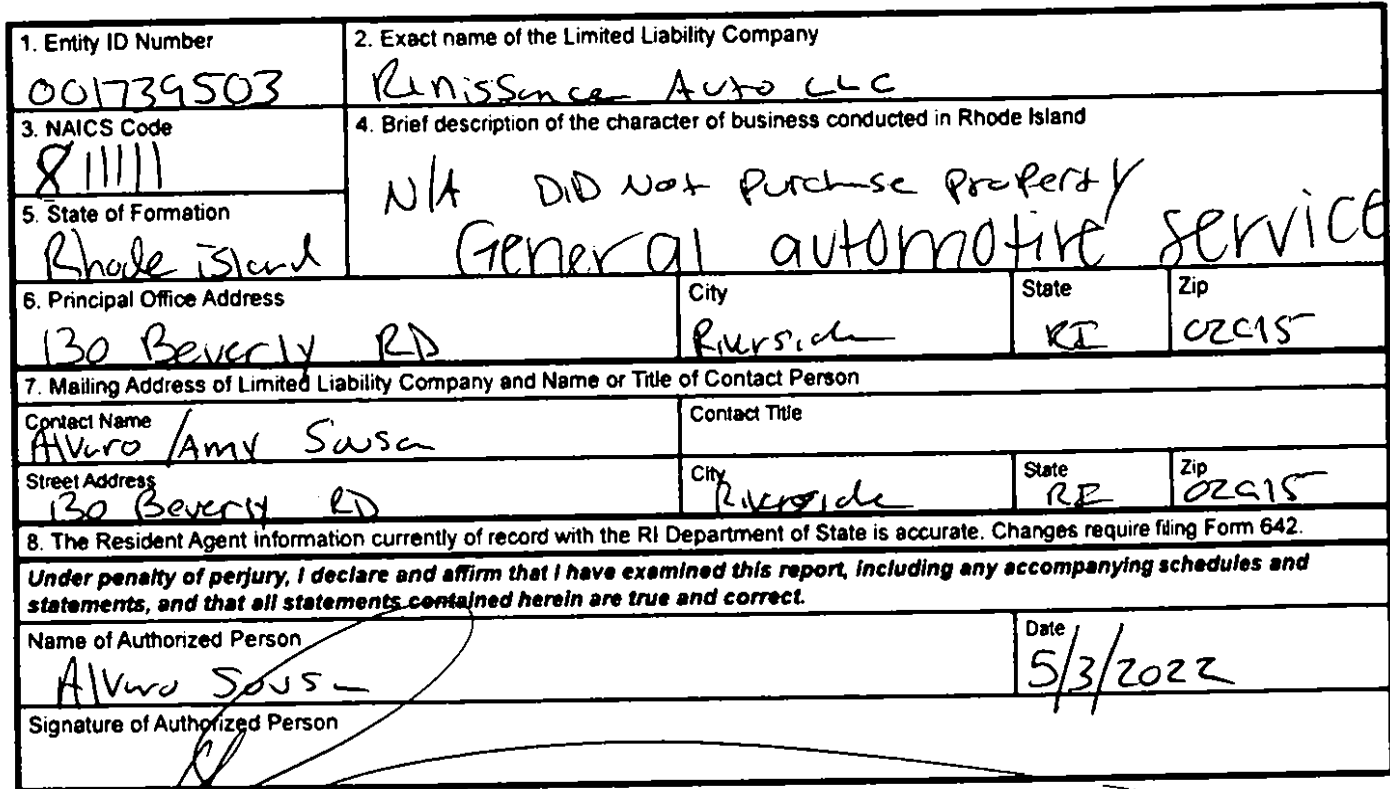 1. Entity ID Number
001739503
2. Exact name of the Limited Liability Company
Renissance Auto LLC
3. NAICS Code
811111
4. Brief description of the character of business conducted in Rhode Island
N/A DID Not Purchase Property
General automotive service
5. State of Formation
Rhode island
6. Principal Office Address
130 Beverly RD
City
Riverside
State
RI
Zip
02915
7. Mailing Address of Limited Liability Company and Name or Title of Contact Person
Contact Name
Alvaro / Amy Sousa
Contact Title
Street Address
130 Beverly RD
City
Riverside
State
RI
Zip
02915
8. The Resident Agent information currently of record with the RI Department of State is accurate. Changes require filing Form 642.
Under penalty of perjury, I declare and affirm that I have examined this report, including any accompanying schedules and
statements, and that all statements contained herein are true and correct.
Name of Authorized Person
Alvaro Sousa
Date
5/3/2022
Signature of Authorized Person